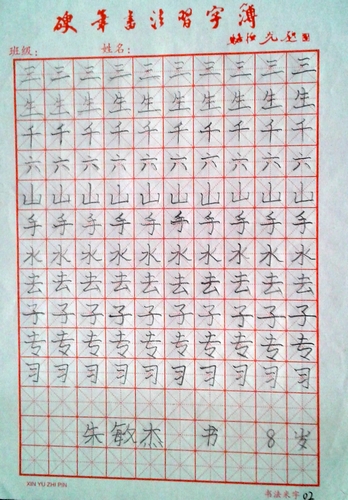 硬筆書法習字簿
班級： 姓名：
三三三三三三三三三三
生生生生生生生生生生
千千千千千千千千千千
六六六六六六六六六六
山山山山山山山山山山
手手手手手手手手手手
水水水水水水水水水水
去去去去去去去去去去
子子子子子子子子子子
专专专专专专专专专专
习习习习习习习习习习
朱敏杰 书 8岁
XIN YU ZHI PIN
书法米字 02